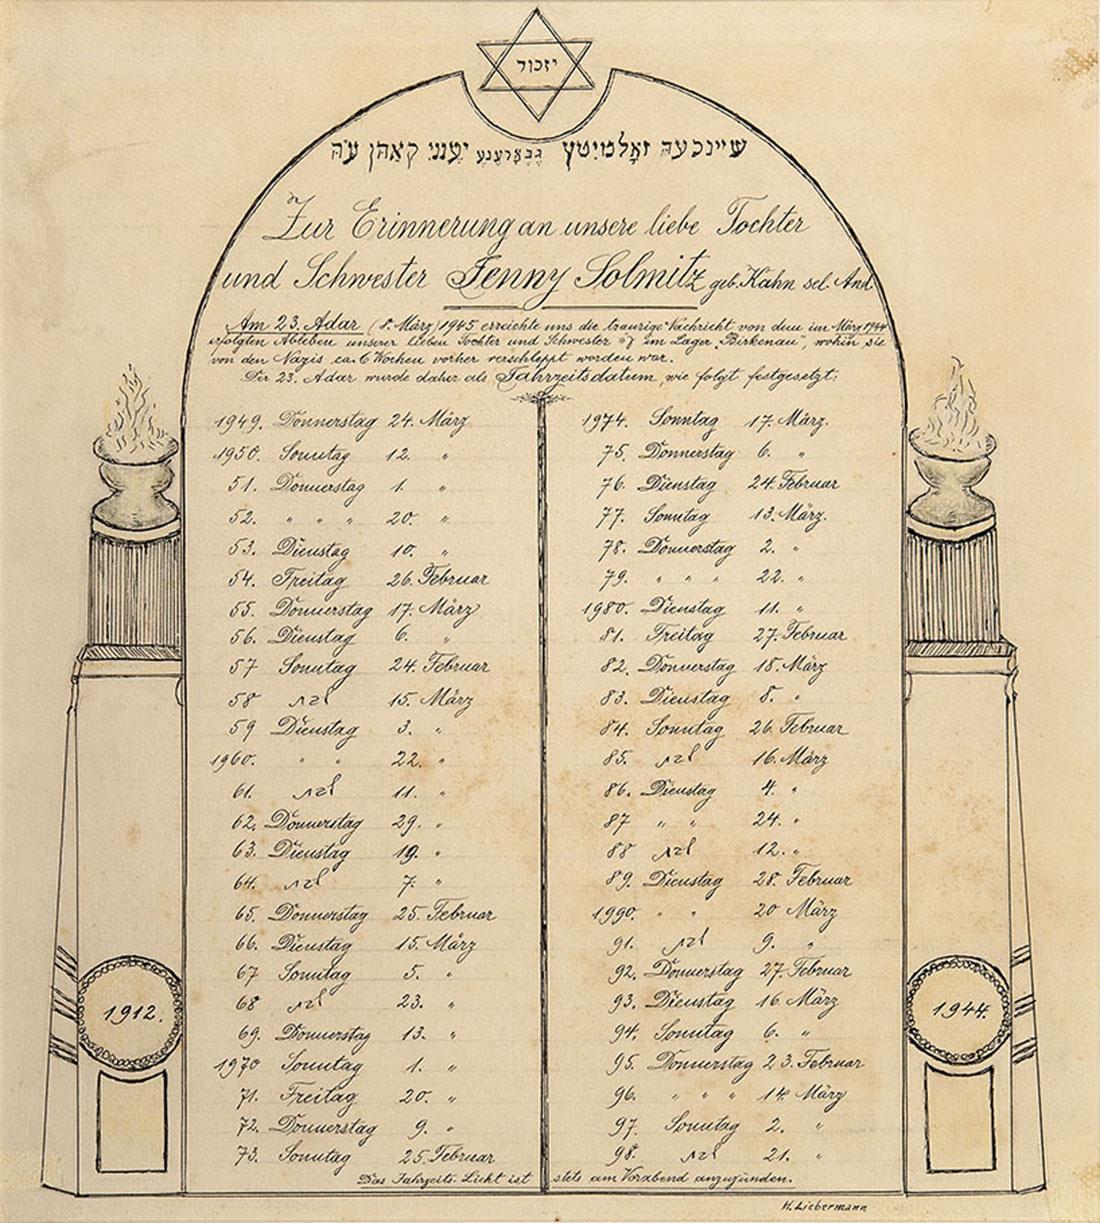 יזכור
שיינכעה זאָלמיטץ געבאָרענע יענני קאַהן ע״ה
Zur Erinnerung an unsere liebe Tochter
und Schwester Jenny Solmitz geb. Kahn sel. And.
Am 23. Adar (8. März) 1945 erreichte uns die traurige Nachricht von dem im März 1944
erfolgten Ableben unserer lieben Tochter und Schwester im Lager „Birkenau", wohin sie
von den Nazis ca. 6 Wochen vorher verschleppt worden war.
Der 23. Adar wurde daher als Jahrzeitsdatum, wie folgt festgesetzt:
1949. Donnerstag 24. März
1950. Sonntag 12. "
51. Donnerstag 1. "
52. " " " 20. "
53. Dienstag 10. "
54. Freitag 26. Februar
55. Donnerstag 17. März
56. Dienstag 6. "
57 Sonntag 24. Februar
58 שבת 15. März
59 Dienstag 3. "
1960. " " 22. "
61. שבת 11. "
62. Donnerstag 29. "
63. Dienstag 19. "
64. שבת 7. "
65. Donnerstag 25. Februar
66. Dienstag 15. März
67 Sonntag 5. "
68 שבת 23. "
69. Donnerstag 13. "
1970 Sonntag 1. "
71. Freitag 20. "
72. Donnerstag 9. "
73. Sonntag 25. Februar
1974. Sonntag 17. März.
75. Donnerstag 6. "
76. Dienstag 24. Februar
77. Sonntag 13. März.
78. Donnerstag 2. "
79. " " " 22. "
1980. Dienstag 11. "
81. Freitag 27. Februar
82. Donnerstag 18. März
83. Dienstag 8. "
84. Sonntag 26. Februar
85. שבת 16. März
86. Dienstag 4. "
87 " " 24. "
88 שבת 12. "
89. Dienstag 28. Februar
1990. " " 20 März
91. שבת 9. "
92. Donnerstag 27. Februar
93. Dienstag 16. März
94. Sonntag 6. "
95. Donnerstag 23. Februar
96. " " " 14. März
97. Sonntag 2. "
98. שבת 21. "
Das Jahrzeits-Licht ist stets am Vorabend anzuzünden.
1912.
1944.
H. Liebermann